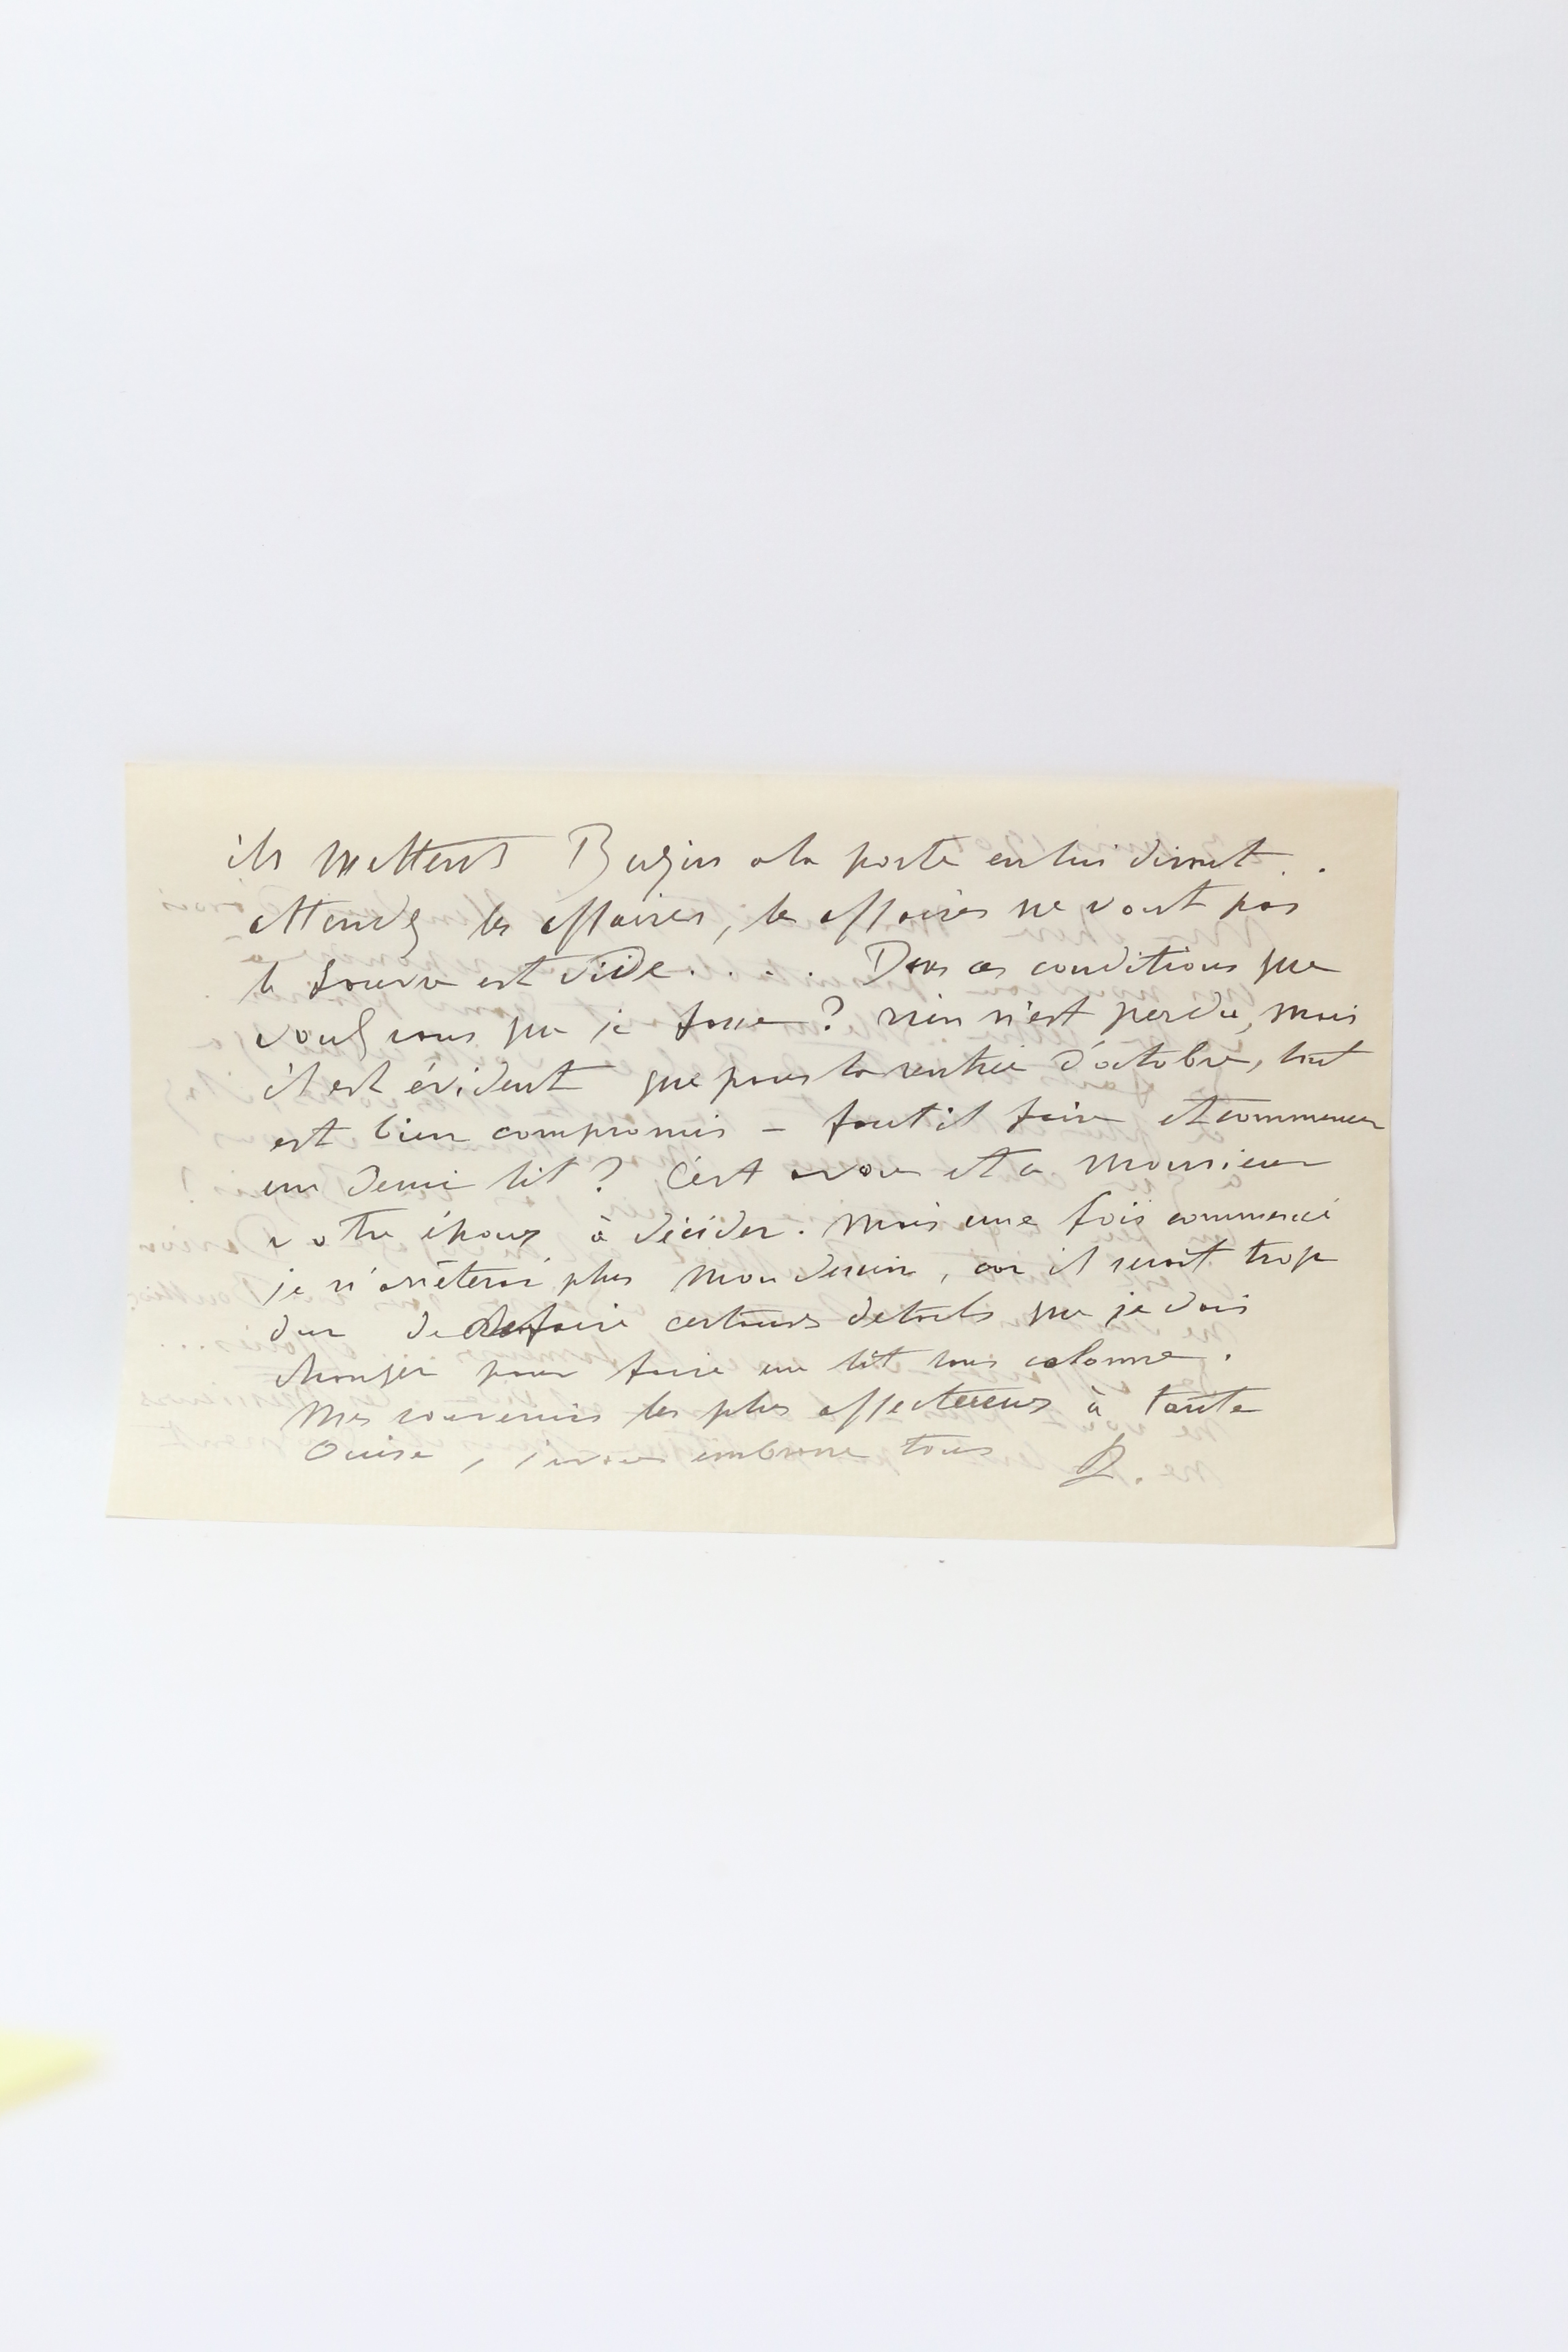 ils mettent Bugin a la porte en lui disant . .
Attendez les affaires, les affaires ne vont pas
la bourse est vide . . . . Dans ces conditions que
voulez vous que je fasse ? rien n'est perdu, mais
il est évident que pour la rentrée d'octobre, tout
est bien compromis - faut il faire et commencer
un demi lit ? C'est a vous et a Monsieur
votre époux à décider. Mais une fois commencé
je n'arrêterai plus mon dessin, car il serait trop
dur de refaire certains détails que je dois
changer pour faire un lit sans colonne.
Mes souvenirs les plus affectueux à tante
Ouise, je vous embrasse tous